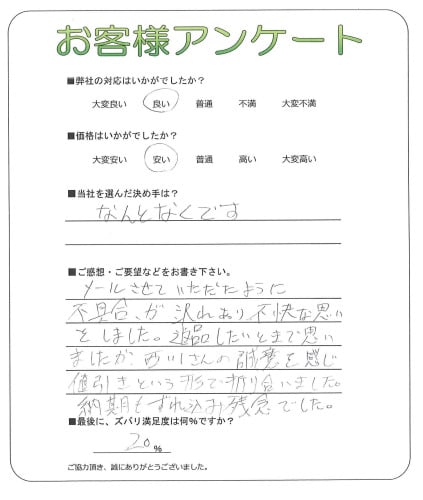 お客様アンケート
■弊社の対応はいかがでしたか？
大変良い 良い 普通 不満 大変不満
■価格はいかがでしたか？
大変安い 安い 普通 高い 大変高い
■当社を選んだ決め手は？
なんとなくです
■ご感想・ご要望などをお書き下さい。
メールさせていただたように
不具合が沢れあり不快な思い
をしました。返品したいとまで思い
ましたが、西川さんの誠意を感じ
値引きという形で折り合いました。
納期もずれ込み残念でした。
■最後に、ズバリ満足度は何%ですか？
20%
ご協力頂き、誠にありがとうございました。